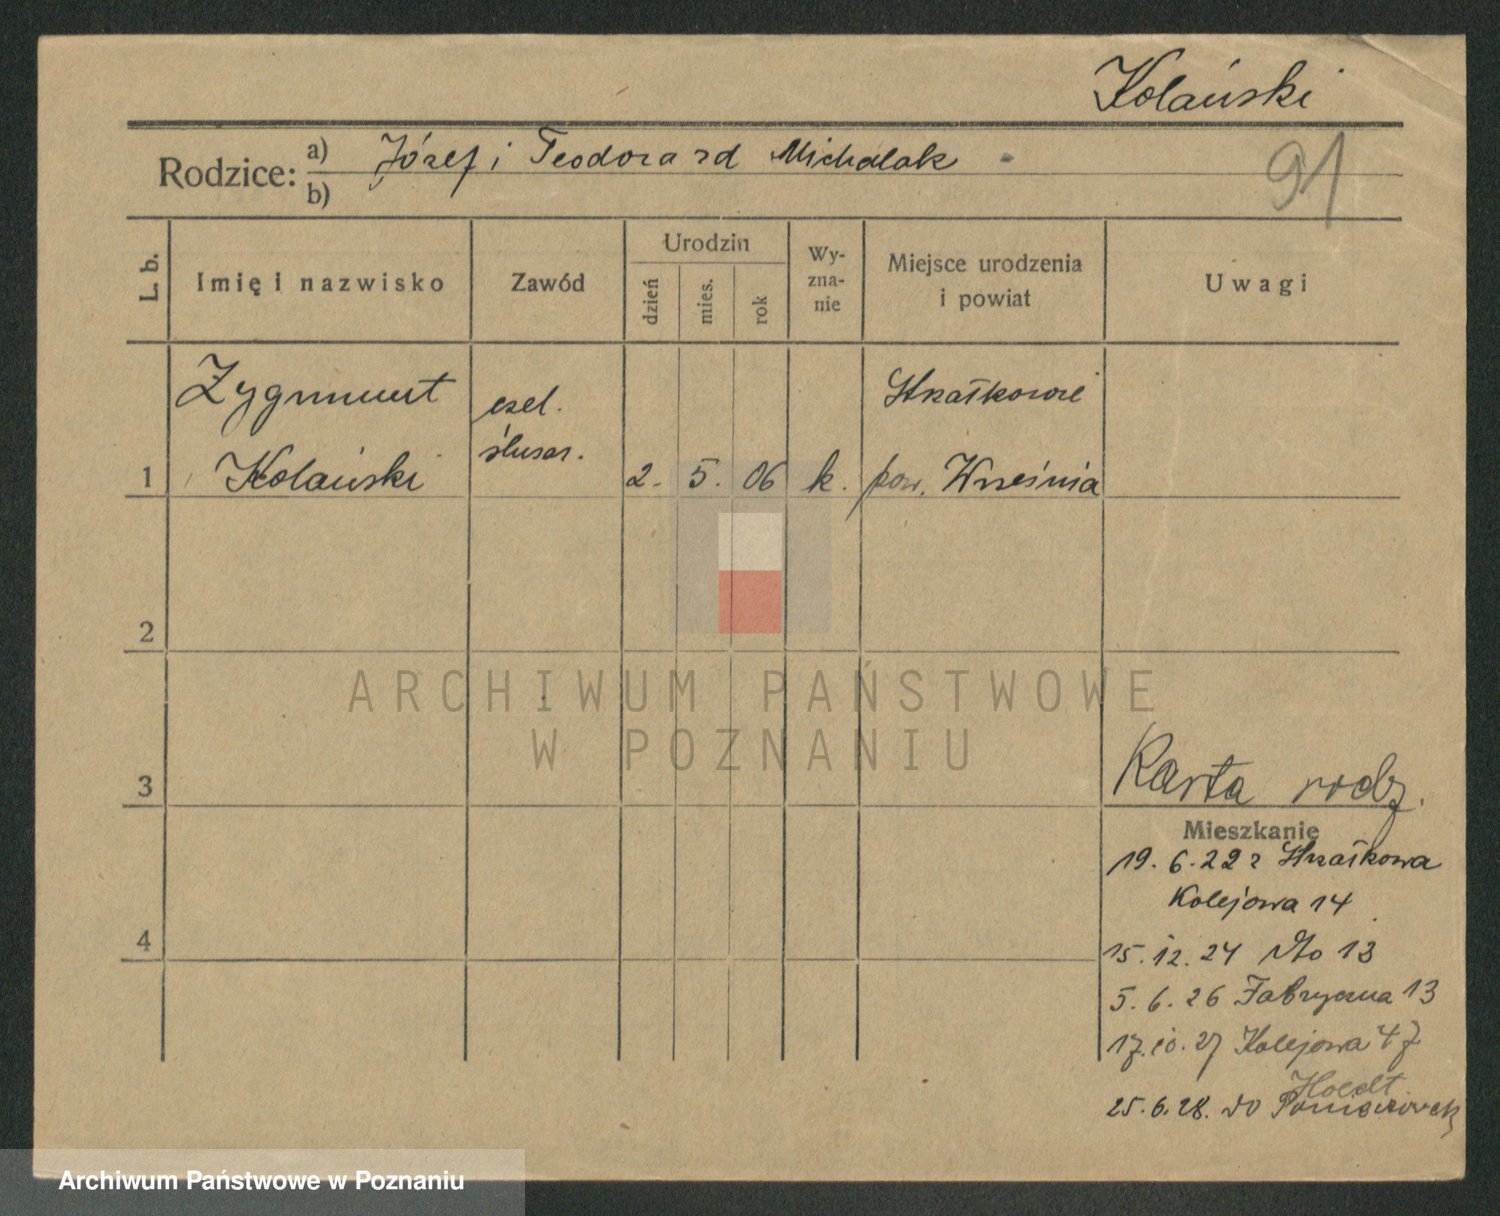 Kolański
Rodzice: a) Józef i Teodora zd Michalak
b)
91
L. b.
Imię i nazwisko
Zawód
Urodzin
dzień
mies.
rok
Wy-
zna-
nie
Miejsce urodzenia
i powiat
Uwagi
Zygmunt
Kolański
czel.
ślusar.
1
2. 5. 06 k.
Strzałkowie
pow. Września
2
ARCHIWUM PAŃSTWOWE
W POZNANIU
3
Karta rodz.
Mieszkanie
19. 6. 22 z Strzałkowa
Kolejowa 14
4
15. 12. 24 13
5. 6. 26 Fabryczna 13
17. 10. 27 Kolejowa 47
25. 6. 28. do
Archiwum Państwowe w Poznaniu